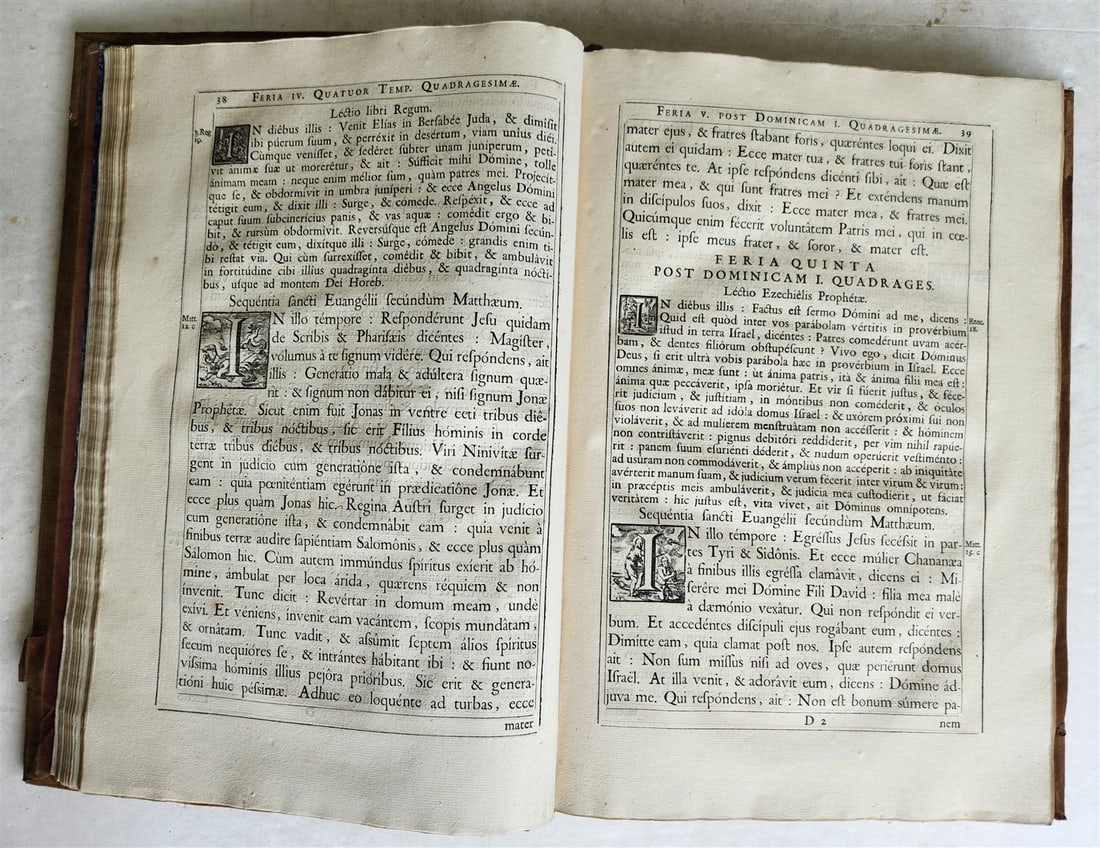 38 FERIA IV. QUATUOR TEMP. QUADRAGESIMÆ.
Lectio libri Regum.
3. Reg. 19.
IN diêbus illis : Venit Elías in Bersabée Juda, & dimísit
ibi púerum suum, & perréxit in desértum, viam unius diéi.
Cùmque venisset, & sedéret subter unam juníperum, petí-
vit ánimæ suæ ut morerétur, & ait : Súfficit mihi Dómine, tolle
ánimam meam : neque enim mélior sum, quàm patres mei. Projecít-
que se, & obdormívit in umbra juníperi : & ecce Angelus Dómini
tétigit eum, & dixit illi : Surge, & cómede. Respéxit, & ecce ad
caput suum subcinerícius panis, & vas aquæ : comédit ergo & bi-
bit, & rursùm obdormívit. Reversúsque est Angelus Dómini secún-
dò, & tétigit eum, dixítque illi : Surge, cómede : grandis enim ti-
bi restat via. Qui cùm surrexísset, comédit & bibit, & ambulávit
in fortitúdine cibi illíus quadragínta diêbus, & quadragínta nócti-
bus, usque ad montem Dei Horéb.
Sequéntia sancti Euangélii secúndùm Matthæum.
Matt. 12. c
IN illo témpore : Respondérunt Jesu quidam
de Scribis & Pharisæis dicéntes : Magister,
vólumus à te signum vidére. Qui respóndens, ait
illis : Generátio mala & adúltera signum quæ-
rit : & signum non dábitur ei, nisi signum Jonæ
Prophétæ. Sicut enim fuit Jonas in ventre ceti tribus diê-
bus, & tribus nóctibus, sic erit Filius hóminis in corde
terræ tribus diébus, & tribus nóctibus. Viri Ninivítæ sur-
gent in judício cum generatiône ista, & condemnábunt
eam : quia pœniténtiam egérunt in prædicatiône Jonæ. Et
ecce plus quàm Jonas hic. Regína Austri surget in judício
cum generatiône ista, & condemnàbit eam : quia venit à
finibus terræ audire sapiéntiam Salomónis, & ecce plus quàm
Sálomon hic. Cùm autem immúndus spíritus exíerit ab hó-
mine, ámbulat per loca árida, quærens réquiem & non
ínvenit. Tunc dicit : Revértar in domum meam, undè
exívi. Et véniens, ínvenit eam vacántem, scopis mundátam,
& ornàtam. Tunc vadit, & assúmit septem álios spíritus
secum nequióres se, & intrántes hábitant ibi : & fiunt no-
víssima hóminis illíus pejóra prióribus. Sic erit & genera-
tióni huic péssimæ. Adhuc eo loquénte ad turbas, ecce
mater
FERIA V. POST DOMINICAM I. QUADRAGESIMÆ. 39
mater ejus, & fratres stabant foris, quæréntes loqui ei. Dixit
autem ei quidam : Ecce mater tua, & fratres tui foris stant,
quæréntes te. At ipse respóndens dicénti sibi, ait : Quæ est
mater mea, & qui sunt fratres mei ? Et exténdens manum
in discípulos suos, dixit : Ecce mater mea, & fratres mei.
Quicúmque enim fécerit voluntátem Patris mei, qui in cœ-
lis est : ipse meus frater, & soror, & mater est.
FERIA QUINTA
POST DOMINICAM I. QUADRAGES.
Lectio Ezechiélis Prophétæ.
IN diêbus illis : Factus est sermo Dómini ad me, dicens :
18.
Quid est quòd inter vos parábolam vértitis in provérbium
istud in terra Israel, dicéntes : Patres comedérunt uvam acér-
bam, & dentes filiórum obstupéscunt ? Vivo ego, dicit Dóminus
Deus, si erit ultrà vobis parábola hæc in provérbium in Israel. Ecce
omnes ánimæ, meæ sunt : ùt ánima patris, ità & ánima fílii mea est :
ánima quæ peccáverit, ipsa moriétur. Et vir si fúerit justus, & féce-
rit judícium, & justítiam, in móntibus non coméderit, & óculos
suos non leváverit ad idóla domus Israel : & uxórem próximi sui non
violáverit, & ad mulíerem menstruátam non accésserit : & hóminem
non contristáverit : pignus debitóri reddíderit, per vim nihil rapúe-
rit : panem suum esuriénti déderit, & nudum operúerit vestiménto :
ad usúram non commodáverit, & ámplius non accéperit : ab iniquitáte
avérterit manum suam, & judícium verum fécerit inter virum & virum :
in præcéptis meis ambuláverit, & judícia mea custodíerit, ut fáciat
veritátem : hic justus est, vita vivet, ait Dóminus omnípotens.
Sequéntia sancti Euangélii secúndùm Matthæum.
Matt. 15. c
IN illo témpore : Egréssus Jesus secéssit in par-
tes Tyri & Sidónis. Et ecce múlier Chananæa
à fínibus illis egréssa clamâvit, dicens ei : Mi-
serére mei Dómine Fili David : fília mea malè
à dæmónio vexátur. Qui non respóndit ei ver-
bum. Et accedéntes discípuli ejus rogábant eum, dicéntes :
Dimítte eam, quia clamat post nos. Ipse autem respóndens
ait : Non sum missus nisi ad oves, quæ periérunt domus
Israël. At illa venit, & adorâvit eum, dicens : Dómine ád-
juva me. Qui respóndens, ait : Non est bonum súmere pa-
D 2
nem